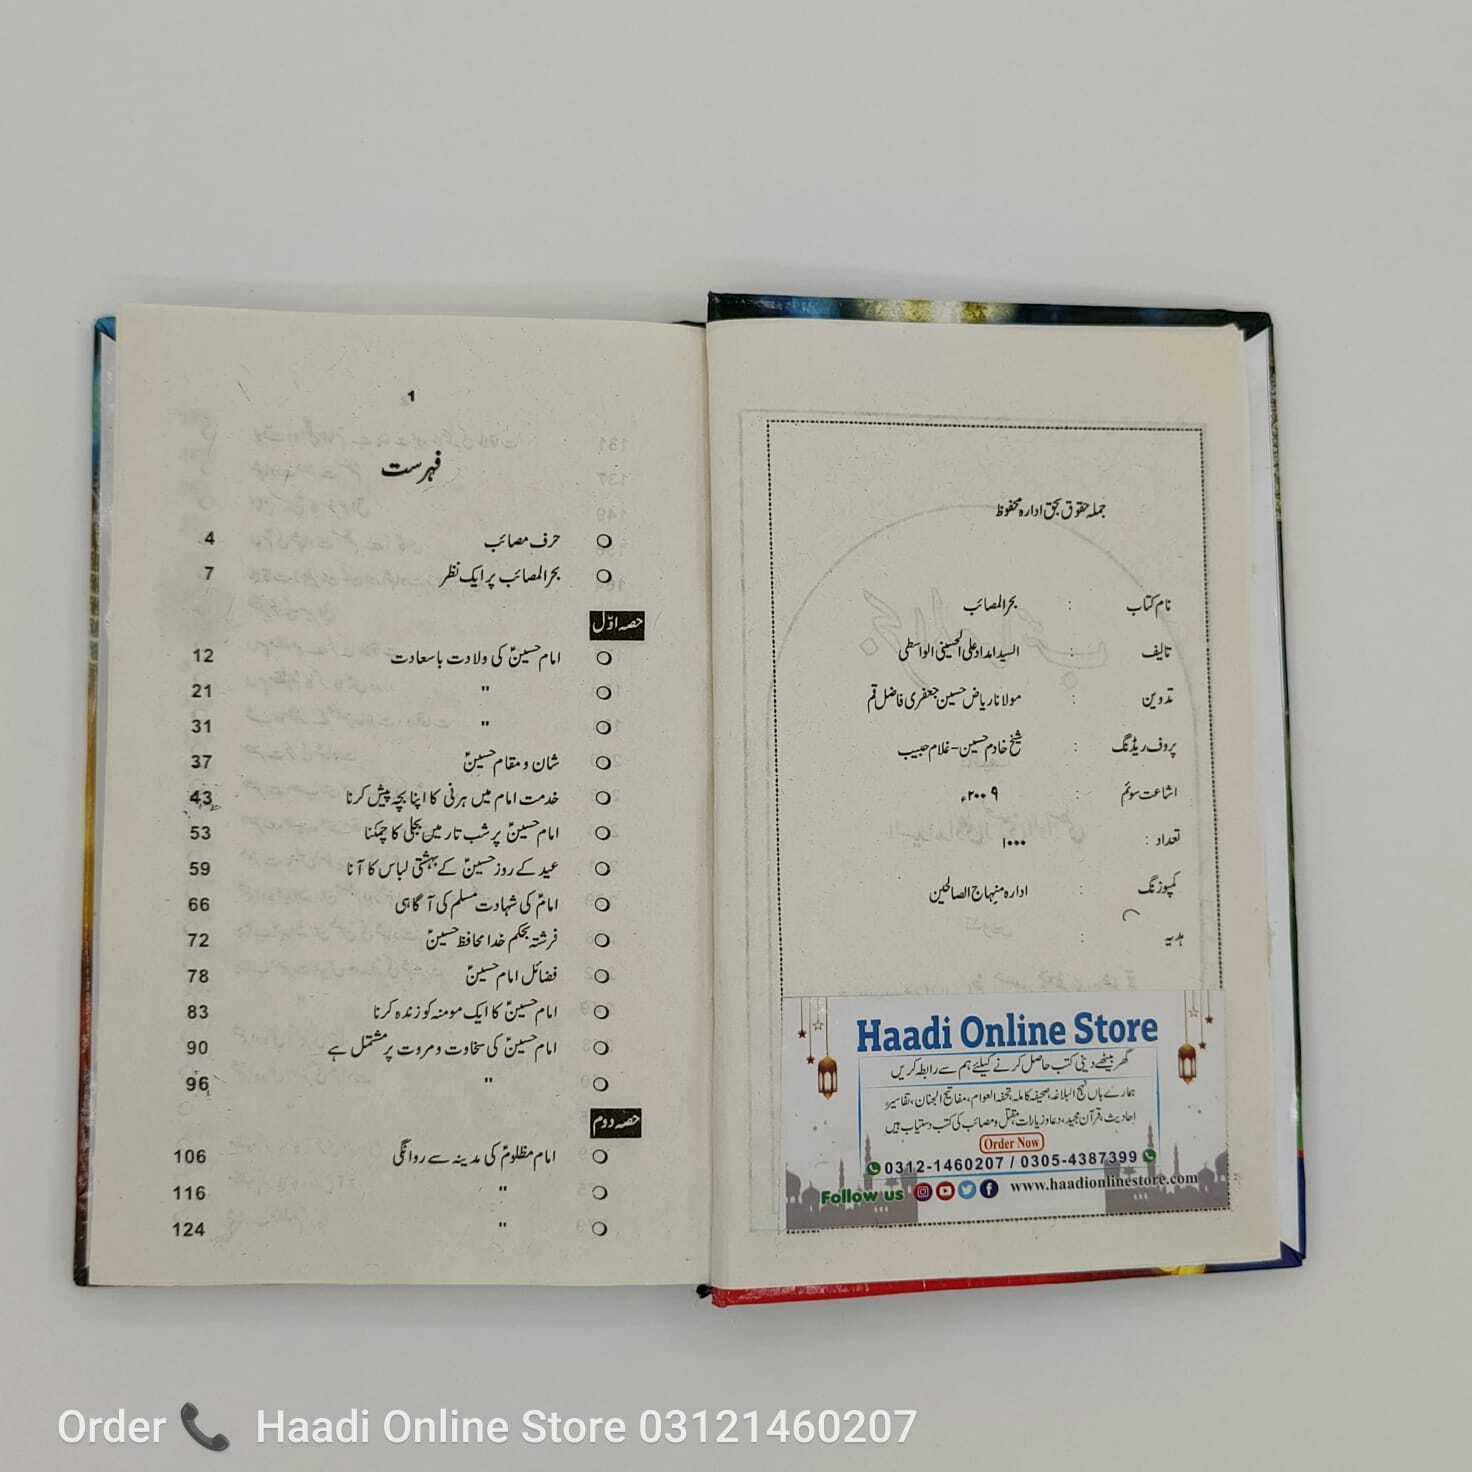 جملہ حقوق بحق ادارہ محفوظ
نام کتاب : بحر المصائب
تالیف : السید امداد علی الحسینی الواسطی
تدوین : مولانا ریاض حسین جعفری فاضل قم
پروف ریڈنگ : شیخ خادم حسین - غلام حبیب
اشاعت سوئم : ۲۰۰۹ء
تعداد : ۱۰۰۰
کمپوزنگ : ادارہ منہاج الصالحین
ہدیہ :
Haadi Online Store
گھر بیٹھے دینی کتب حاصل کرنے کیلئے ہم سے رابطہ کریں
ہمارے ہاں نہج البلاغہ، صحیفہ کاملہ، تحفۃ العوام، مفاتیح الجنان، تفاسیر،
احادیث، قرآن مجید، دعا و زیارات، مقتل و مصائب کی کتب دستیاب ہیں
Order Now
0312-1460207 / 0305-4387399
Follow us www.haadionlinestore.com
1
فہرست
حرف مصائب 4
بحر المصائب پر ایک نظر 7
حصہ اوّل
امام حسینؑ کی ولادت باسعادت 12
" 21
" 31
شان و مقام حسینؑ 37
خدمت امام میں ہرنی کا اپنا بچہ پیش کرنا 43
امام حسینؑ پر شب تار میں بجلی کا چمکنا 53
عید کے روز حسینؑ کے بہشتی لباس کا آنا 59
امامؑ کی شہادت مسلم کی آگاہی 66
فرشتہ بحکم خدا محافظ حسینؑ 72
فضائل امام حسینؑ 78
امام حسینؑ کا ایک مومنہ کو زندہ کرنا 83
امام حسینؑ کی سخاوت و مروت پر مشتمل ہے 90
" 96
حصہ دوم
امام مظلومؑ کی مدینہ سے روانگی 106
" 116
" 124
Order Haadi Online Store 03121460207